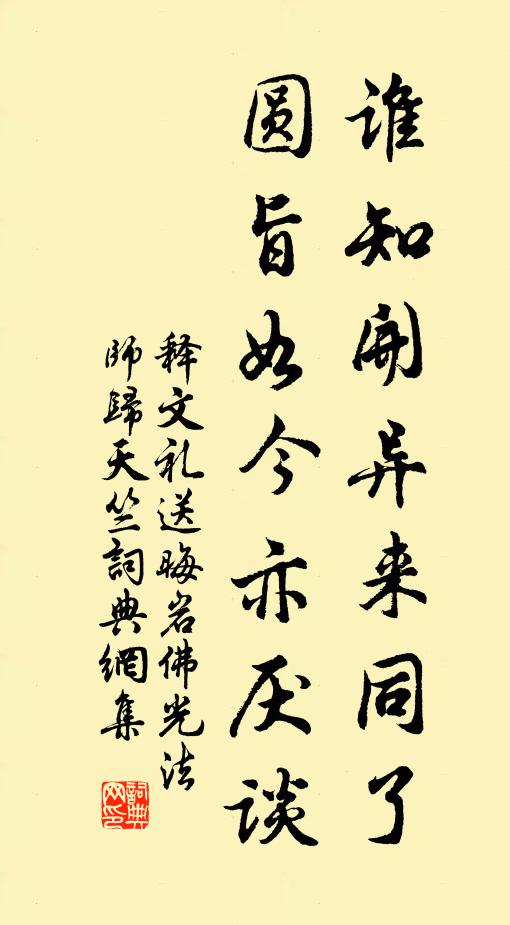 谁知開异来同了
圆旨如今亦厌谈
释文礼送晦岩佛光法
師歸天竺詞典網集
詞典
网印